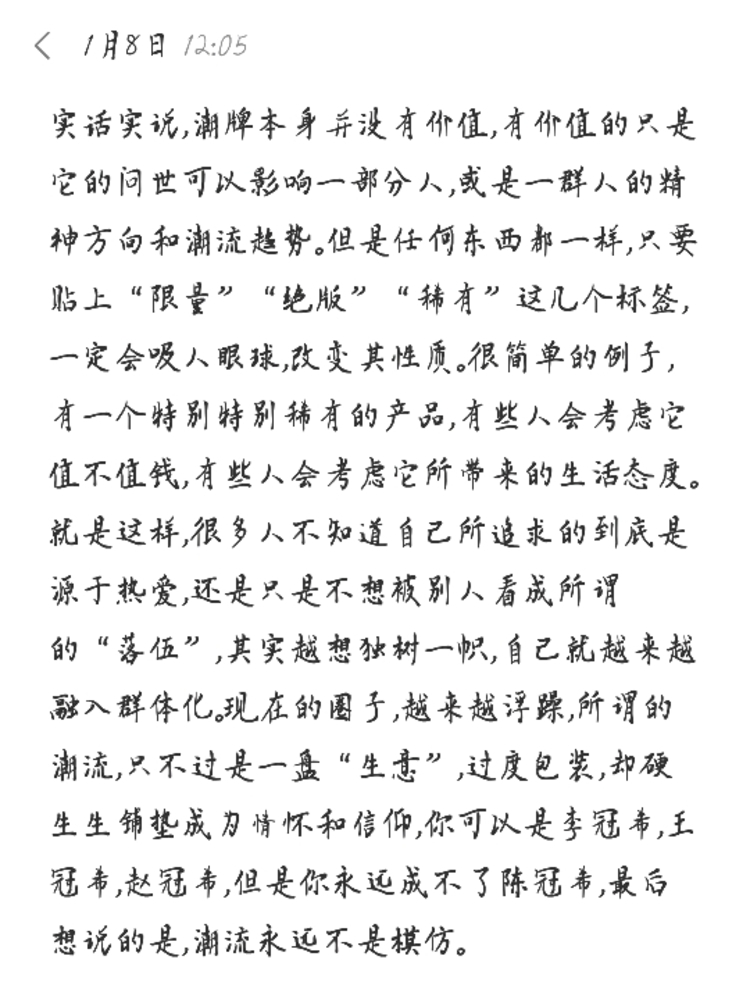 1月8日 12:05
实话实说,潮牌本身并没有价值,有价值的只是
它的问世可以影响一部分人,或是一群人的精
神方向和潮流趋势。但是任何东西都一样,只要
贴上“限量”“绝版”“稀有”这几个标签,
一定会吸人眼球,改变其性质。很简单的例子,
有一个特别特别稀有的产品,有些人会考虑它
值不值钱,有些人会考虑它所带来的生活态度。
就是这样,很多人不知道自己所追求的到底是
源于热爱,还是只是不想被别人看成所谓
的“落伍”,其实越想独树一帜,自己就越来越
融入群体化。现在的圈子,越来越浮躁,所谓的
潮流,只不过是一盘“生意”,过度包装,却硬
生生铺垫成为情怀和信仰,你可以是李冠希,王
冠希,赵冠希,但是你永远成不了陈冠希,最后
想说的是,潮流永远不是模仿。